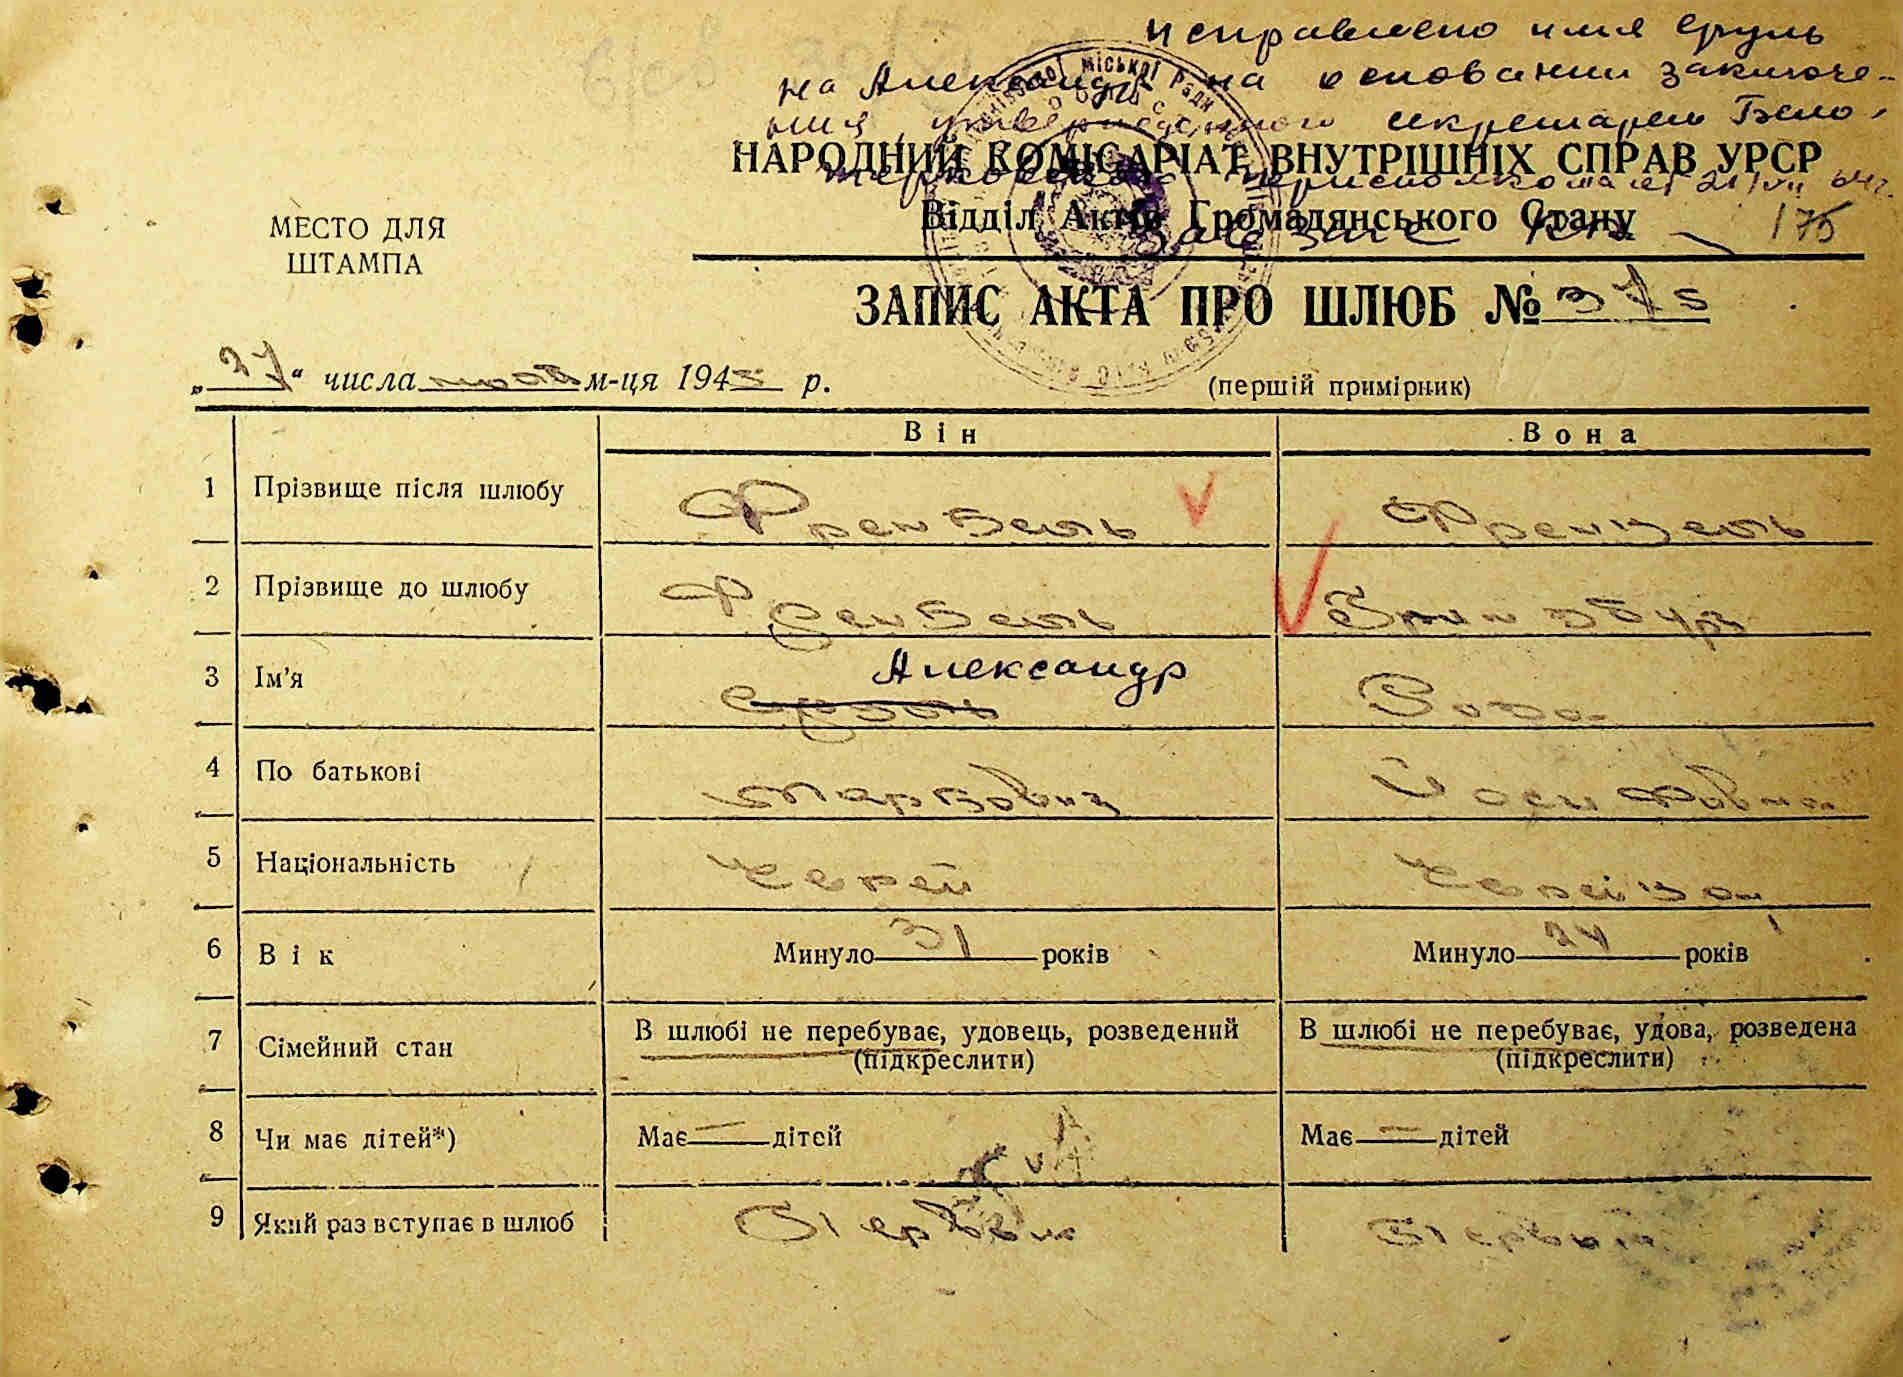 исправлено имя Сруль
на Александр на основании заключе-
ния, утвержденного секретарем Бело-
НАРОДНИЙ КОМІСАРІАТ ВНУТРІШНІХ СПРАВ УРСР
Відділ Актів Громадянського Стану
175
МЕСТО ДЛЯ
ШТАМПА
ЗАПИС АКТА ПРО ШЛЮБ № 375
„27“ числа м-ця 194 р.
(першій примірник)
Він Вона
1 Прізвище після шлюбу Френкель Френкель
2 Прізвище до шлюбу Френкель
3 Ім’я Александр Роза
4 По батькові Маркович Иосифовна
5 Національність Еврей Еврейка
6 Вік Минуло 31 років Минуло 24 років
7 Сімейний стан В шлюбі не перебуває, удовець, розведений В шлюбі не перебуває, удова, розведена
(підкреслити) (підкреслити)
8 Чи має дітей*) Має — дітей Має — дітей
9 Який раз вступає в шлюб Первый Первый